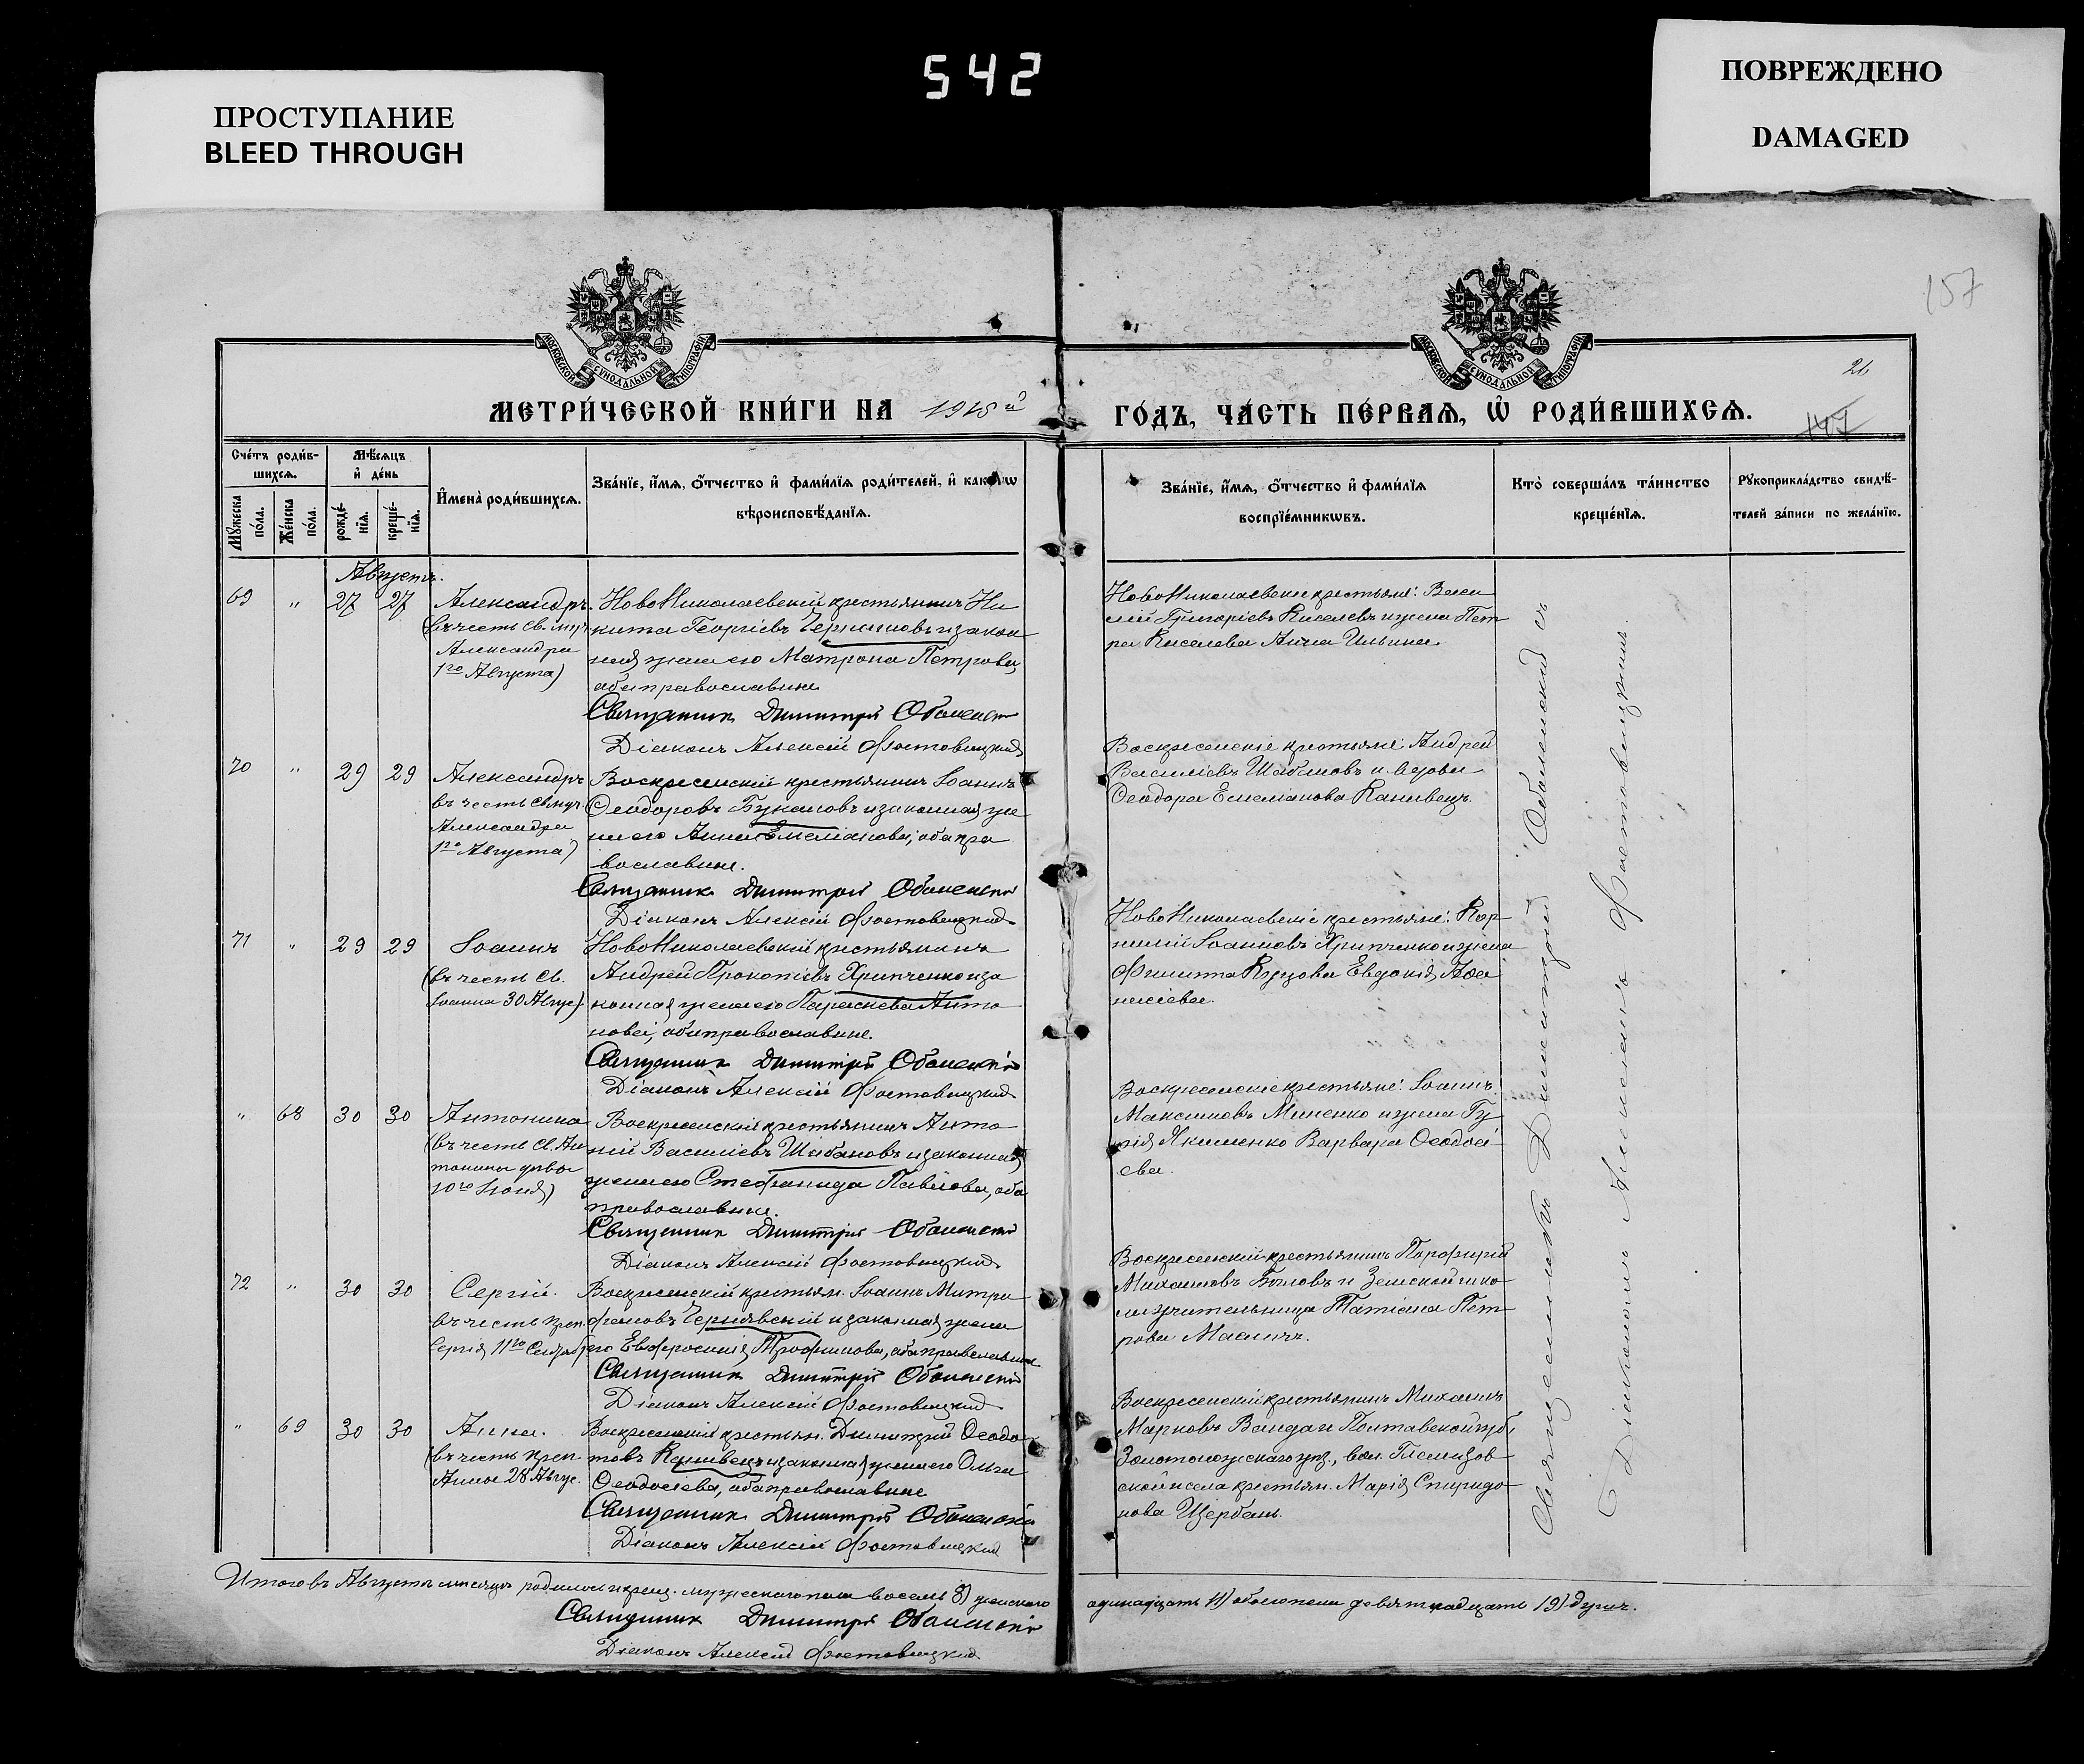 542
ПРОСТУПАНИЕ
BLEED THROUGH
ПОВРЕЖДЕНО
DAMAGED
157
МОСКОВСКОЙ СѴНОДАЛЬНОЙ ТИПОГРАФІИ
МОСКОВСКОЙ СѴНОДАЛЬНОЙ ТИПОГРАФІИ
26
МЕТРИ́ЧЕСКОЙ КНИ́ГИ НА 1915 й
ГО́ДЪ, ЧА́СТЬ ПЕ́РВАѦ, Ѡ҆ РОДИ́ВШИХСѦ.
147
Сче́тъ роди́в-
шихсѧ.
Мꙋ́жеска по́ла.
Же́нска по́ла.
Мѣ́сѧцъ
и҆ де́нь
рожде́-
нїѧ.
креще́-
нїѧ.
И҆мена̀ роди́вшихсѧ.
Зва́нїе, и҆́мѧ, ѻ҆́тчество и҆ фами́лїѧ роди́телей, и҆ како́гѡ
вѣроисповѣ́данїѧ.
Зва́нїе, и҆́мѧ, ѻ҆́тчество и҆ фами́лїѧ
воспрїе́мникѡвъ.
Кто̀ соверша́лъ та́инство
креще́нїѧ.
Рꙋкоприкла́дство свидѣ́-
телей за́писи по жела́нїю.
Августъ.
69 " 27 27
Александръ
(въ честь св. муч.
Александра
1го Августа)
НовоНиколаевскій крестьянинъ Ни
кита Георгіевъ и закон
ная жена его Матрона Петрова,
оба православные
Священникъ Димитрій Оболенскій
Діаконъ Алексій Фостовецкій
НовоНиколаевскіе крестьяне: Васи
лій Григоріевъ Киселевъ и жена Пет
ра Киселева Анна Ильина
70 " 29 29
Александръ
въ честь св. муч.
Александра
1го Августа)
Воскресенскій крестьянинъ Іоаннъ
Ѳеодоровъ и законная же
на его Анна Емеліанова, оба пра
вославные.
Священникъ Димитрій Оболенскій
Діаконъ Алексій Фостовецкій
Воскресенскіе крестьяне: Андрей
Василіевъ Шабановъ и вдова
Ѳеодора Емеліанова Канивецъ.
71 " 29 29
Іоаннъ
(въ честь св.
Іоанна 30 Авгус.)
НовоНиколаевскій крестьянинъ
Андрей Прокопіевъ Хрипченко и за
конная жена его Параскева Анто
нова, оба православные.
Священникъ Димитрій Оболенскій
Діаконъ Алексій Фостовецкій
НовоНиколаевскіе крестьяне: Кор-
нилій Іоанновъ Хрипченко и жена
Филиппа Евдокія Аѳа
насіева.
" 68 30 30
Антонина
(въ честь св. Ан
тонины дѣвы
10го Іюня)
Воскресенскій крестьянинъ Анто
ній Василіевъ Шабановъ и законная
жена его Стефанида Павлова, оба
православные.
Священникъ Димитрій Оболенскій
Діаконъ Алексій Фостовецкій
Воскресенскіе крестьяне: Іоаннъ
Максимовъ Миненко и жена Гу
рія Якименко Варвара Ѳеодосі
ева.
72 " 30 30
Сергій.
въ честь преп.
Сергія 11го Сентяб.
Воскресенскій крестьян. Іоаннъ Митро
фановъ Чернявскій и законная жена
его Евфросинія Трофимова, оба православные
Священникъ Димитрій Оболенскій
Діаконъ Алексій Фостовецкій
Воскресенскій крестьянинъ Порфирій
Михаиловъ и Земской шко-
лы учительница Татіана Пет-
рова
" 69 30 30
Анна.
(въ честь преп
Анны 28 Авгус.
Воскресенскій крестьян. Димитрій Ѳеодо
товъ Канивецъ и законная жена его Ольга
Ѳеодосіева, оба православные
Священникъ Димитрій Оболенскій
Діаконъ Алексій Фостовецкій
Воскресенскій крестьянинъ Михаилъ
Марковъ и Полтавской губ.,
Золотоношскаго уѣз., вол.
села крестьян. Марія Спиридо
нова Щербань.
Священникъ Димитрій Оболенскій съ
Діакономъ Алексіемъ Фостовецкимъ.
Итого въ Августѣ мѣсяцѣ родилось и крещ. мужескаго пола восемь 8) женскаго
одинадцать 11) обоего пола девятнадцать 19) душъ.
Священникъ Димитрій Оболенскій
Діаконъ Алексій Фостовецкій